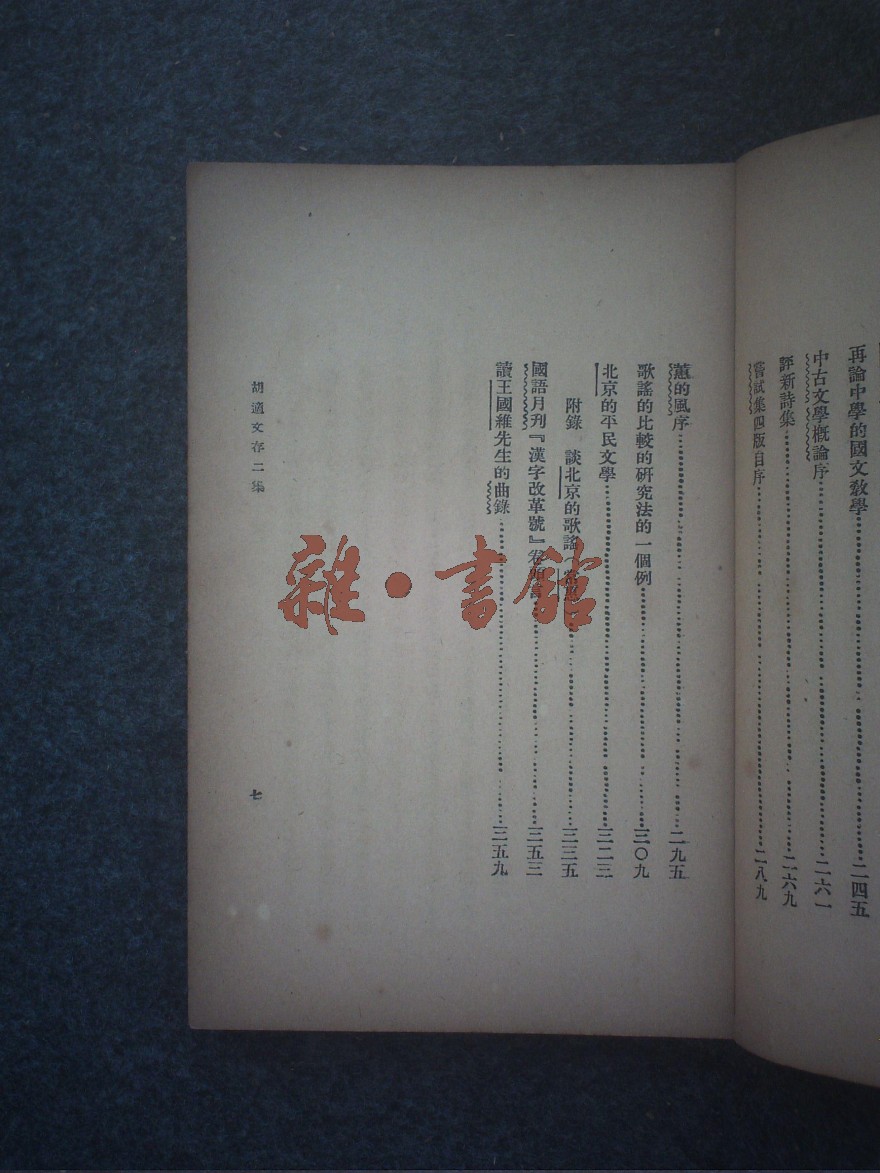 再論中學的國文教學……二四五
中古文學概論序……二六一
評新詩集……二六九
嘗試集四版自序……二八九
蕙的風序……二九五
歌謠的比較的研究法的一個例……三〇九
北京的平民文學……三二三
附錄 談北京的歌謠……三三五
國語月刊『漢字改革號』卷頭言……三五三
讀王國維先生的曲錄……三五九
胡適文存二集
七
雜·書館